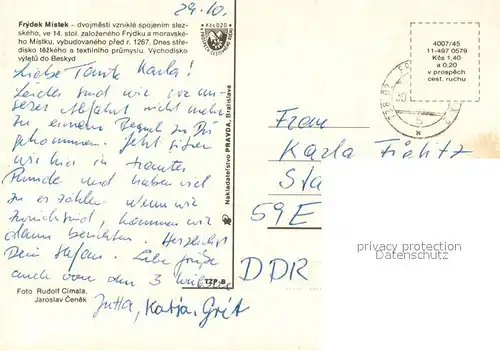 29.10.
Frýdek Místek – dvojměstí vzniklé spojením slez-
ského, ve 14. stol. založeného Frýdku a moravské-
ho Místku, vybudovaného před r. 1267. Dnes stře-
disko těžkého a textilního průmyslu. Východisko
výletů do Beskyd
Kčs 0,20
Liebe Tante Karla!
Leider sind wir vor un-
serer Abfahrt nicht mehr
zu einem Besuch zu Dir
gekommen. Jetzt sitzen
wir hier in trauter
Runde und haben viel
zu erzählen. Wenn wir
zurück sind, kommen wir
dann berichten. Herzlichst
Dein Stefan. Liebe Grüße
auch von den 3
Jutta, Katja, Grit
Foto Rudolf Címala,
Jaroslav Čeněk
Nakladateľstvo PRAVDA, Bratislava
TZP-B
4007/45
11-497 0579
Kčs 1,40
a 0,20
v prospěch
cest. ruchu
Frau
Karla
59E
DDR
privacy protection
Datenschutz